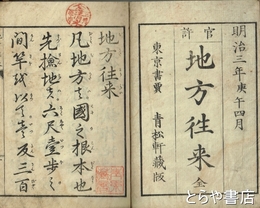 明治三年庚午四月
官許
地方往来 全
東京書賈 青松軒蔵版
地方往来
凡地方は國之根本也
先撿地者六尺壹歩
間竿を以て壱反三百
とらや書房